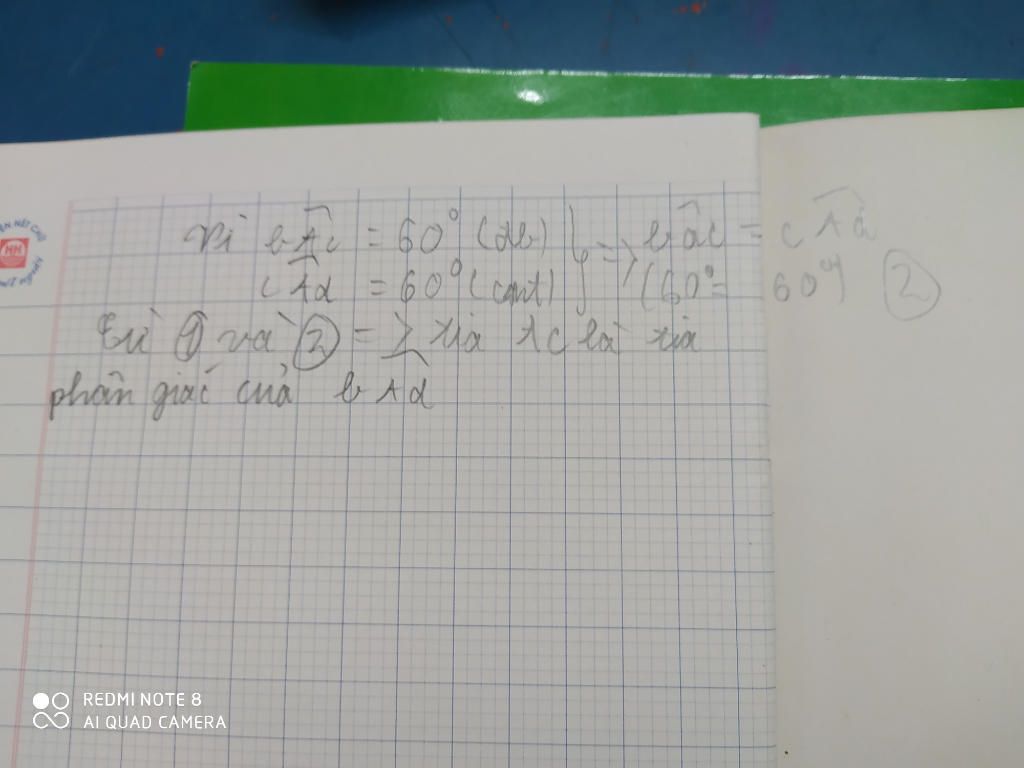 Vì bÂc = 60° (đb) } => bÂc = cÂd
cÂd = 60° (cmt) (60° = 60°) ②
Từ ① và ② => tia Ac là tia
phân giác của bÂd
REDMI NOTE 8
AI QUAD CAMERA